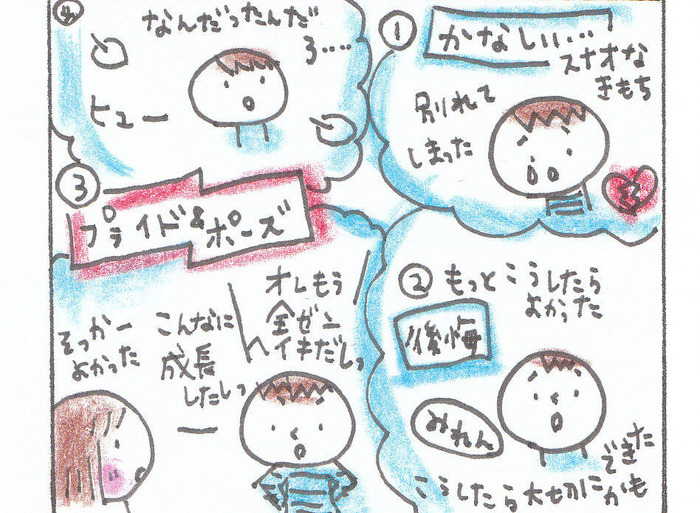 ①
かなしい…
スナオな
きもち
別れて
しまった
②
もっとこうしたら
よかった
後悔
みれん
こうしたら大切に
できた
かも
③
プライド&ポーズ
オレもう
全ゼン
ヘイキだしっ
こんなに
成長
したしっ
そっかー
よかった
④
なんだったんだ
ろ……
ヒュー